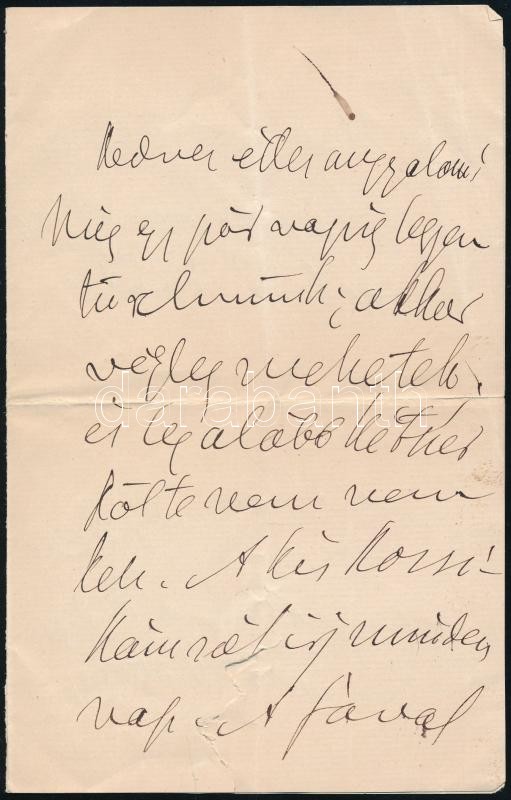 Kedves édes angyalom!
Még egy pár napig legyen
türelmünk, akkor
végleg mehetek,
és legalább kétszer
költenem nem
kell. A kis
írj minden
nap. A
darabanth